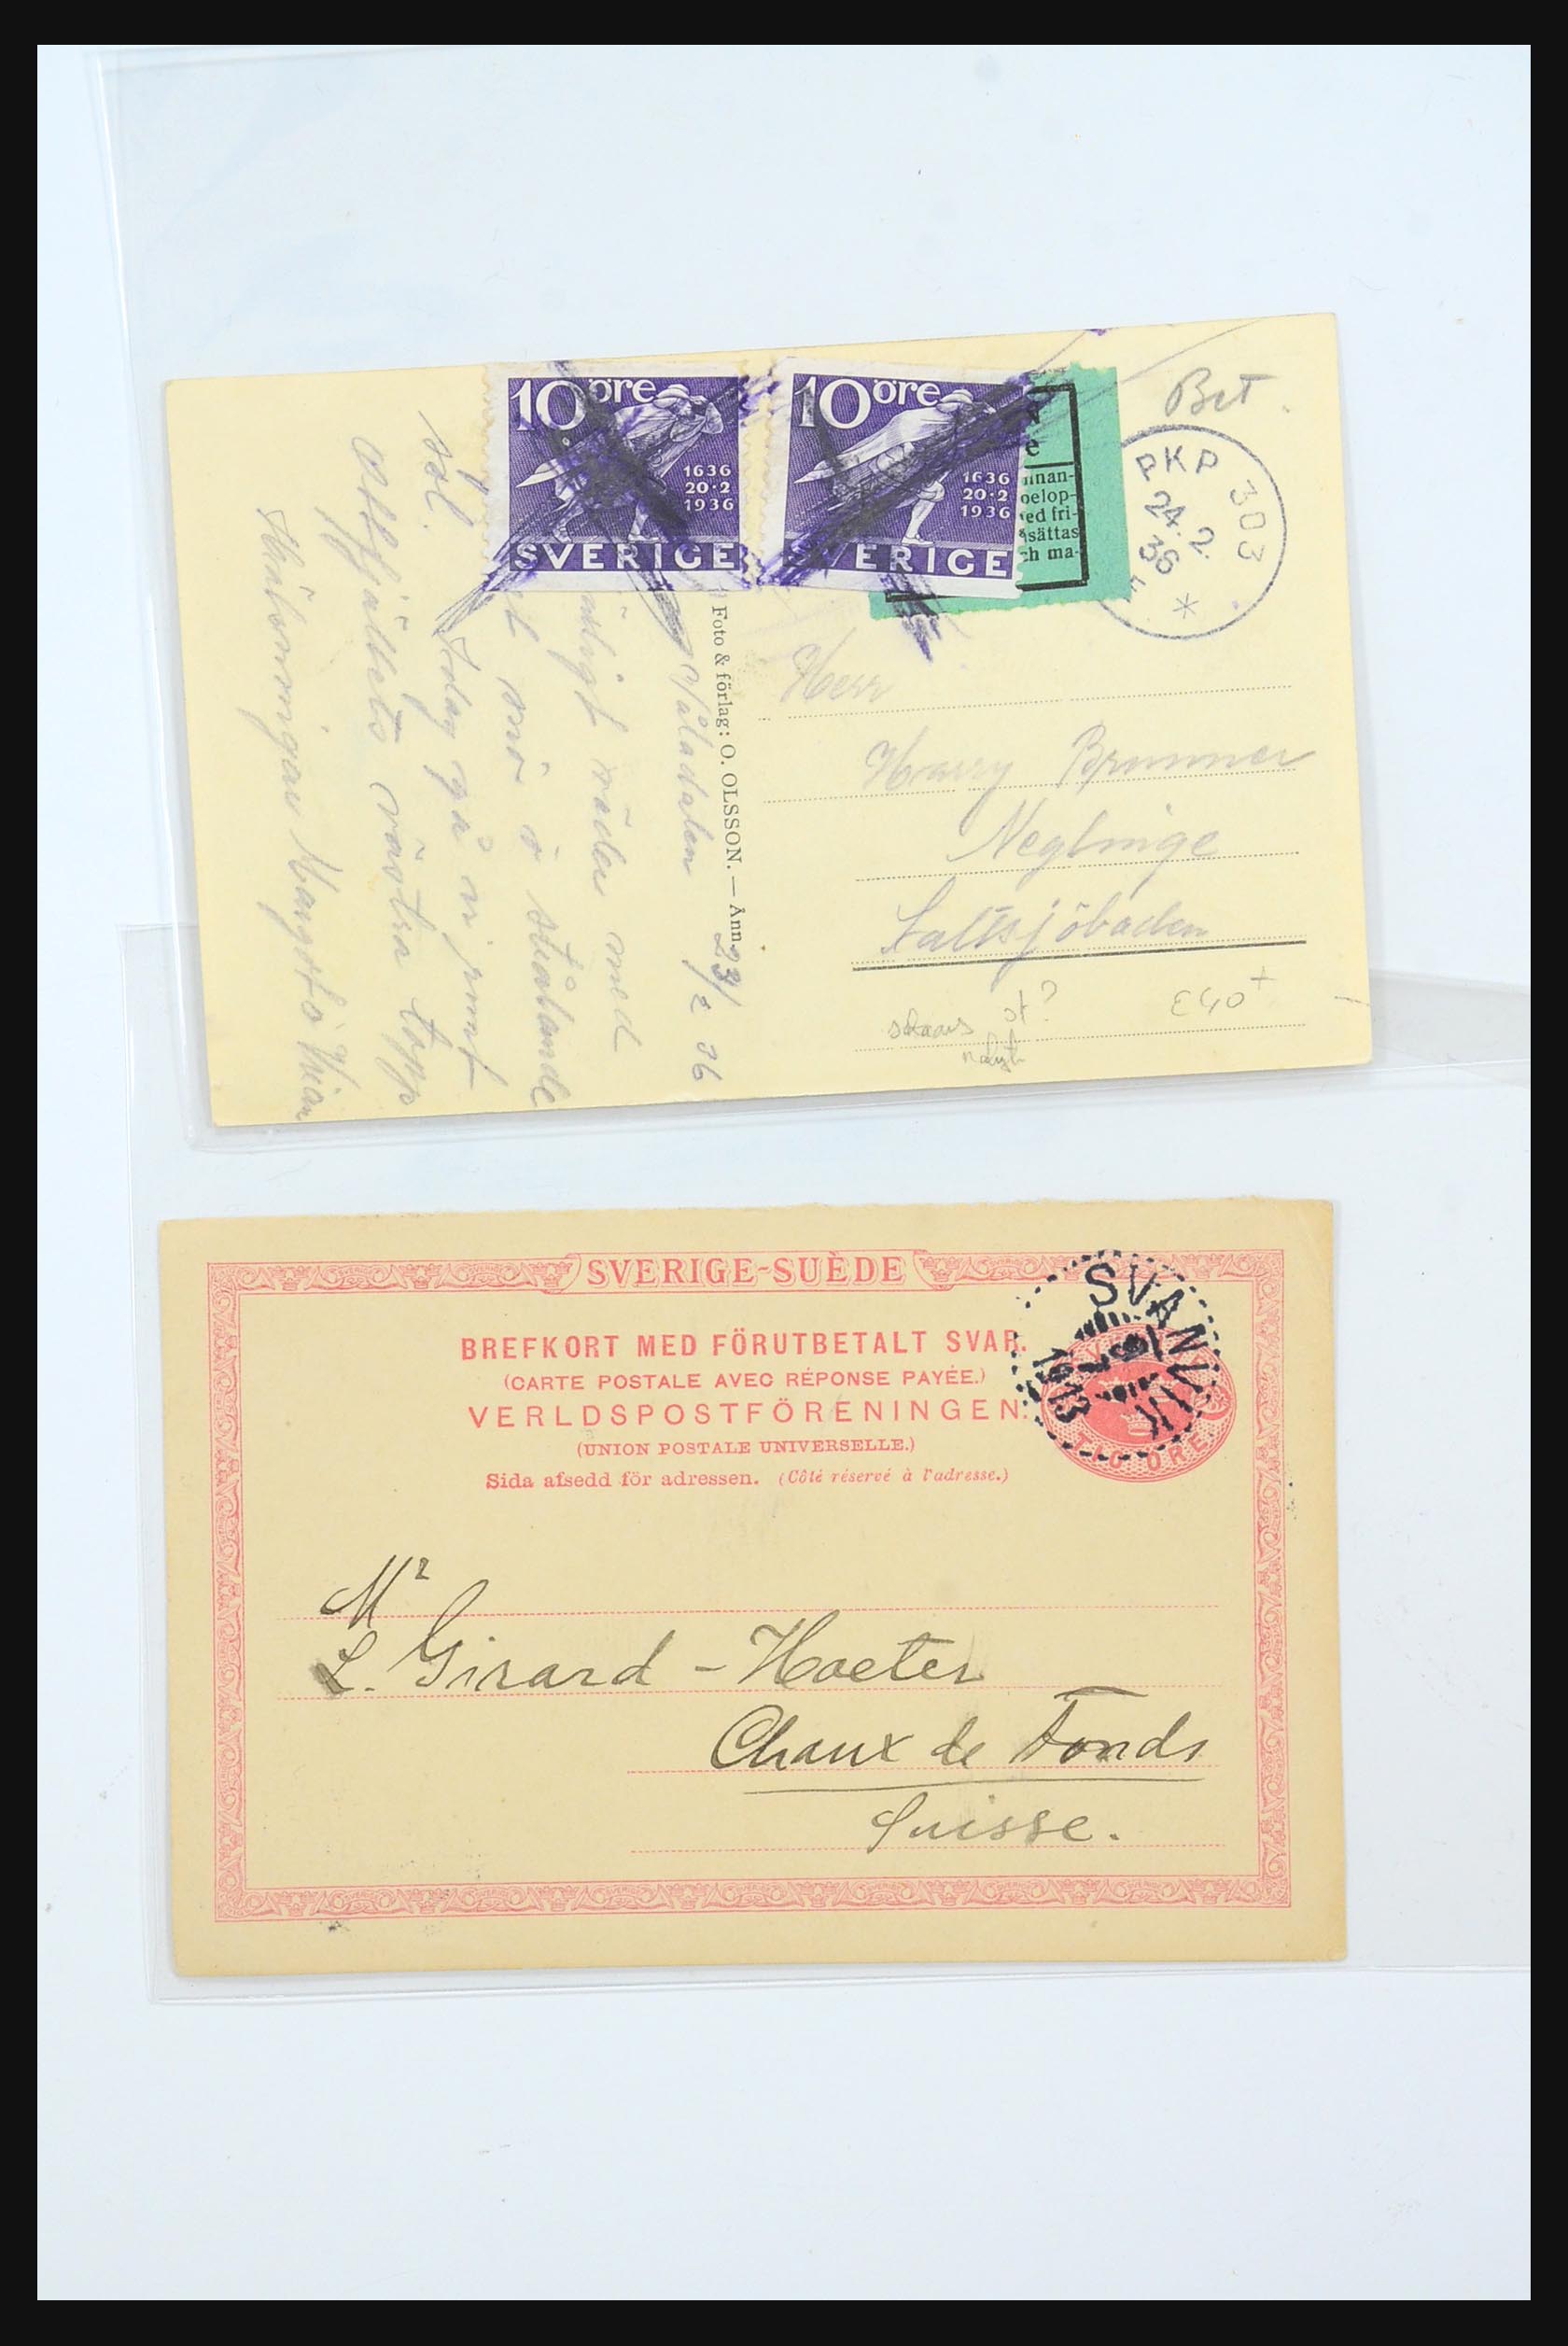 10 öre
1636
20·2
1936
SVERIGE
10 öre
1636
20·2
1936
SVERIGE
e
innan-
belop-
ed fri-
sättas
ch ma-
Bet.
PKP 303
24.2.
36
*
Herr
Harry Brunner
Neglinge
Saltsjöbaden
st?
£40+
Foto & förlag: O. OLSSON. — Ånn.
Våladalen 23/2 36
väder med
snö o strålande
sol. Idag på
Ottfjällets västra topp
Hälsningar
SVERIGE-SUÈDE
BREFKORT MED FÖRUTBETALT SVAR.
(CARTE POSTALE AVEC RÉPONSE PAYÉE.)
VERLDSPOSTFÖRENINGEN.
(UNION POSTALE UNIVERSELLE.)
Sida afsedd för adressen. (Côté réservé à l'adresse.)
SVANVIK
1913
TIO ÖRE
Mr
L. Girard-Hoeter
Chaux de Fonds
Suisse.